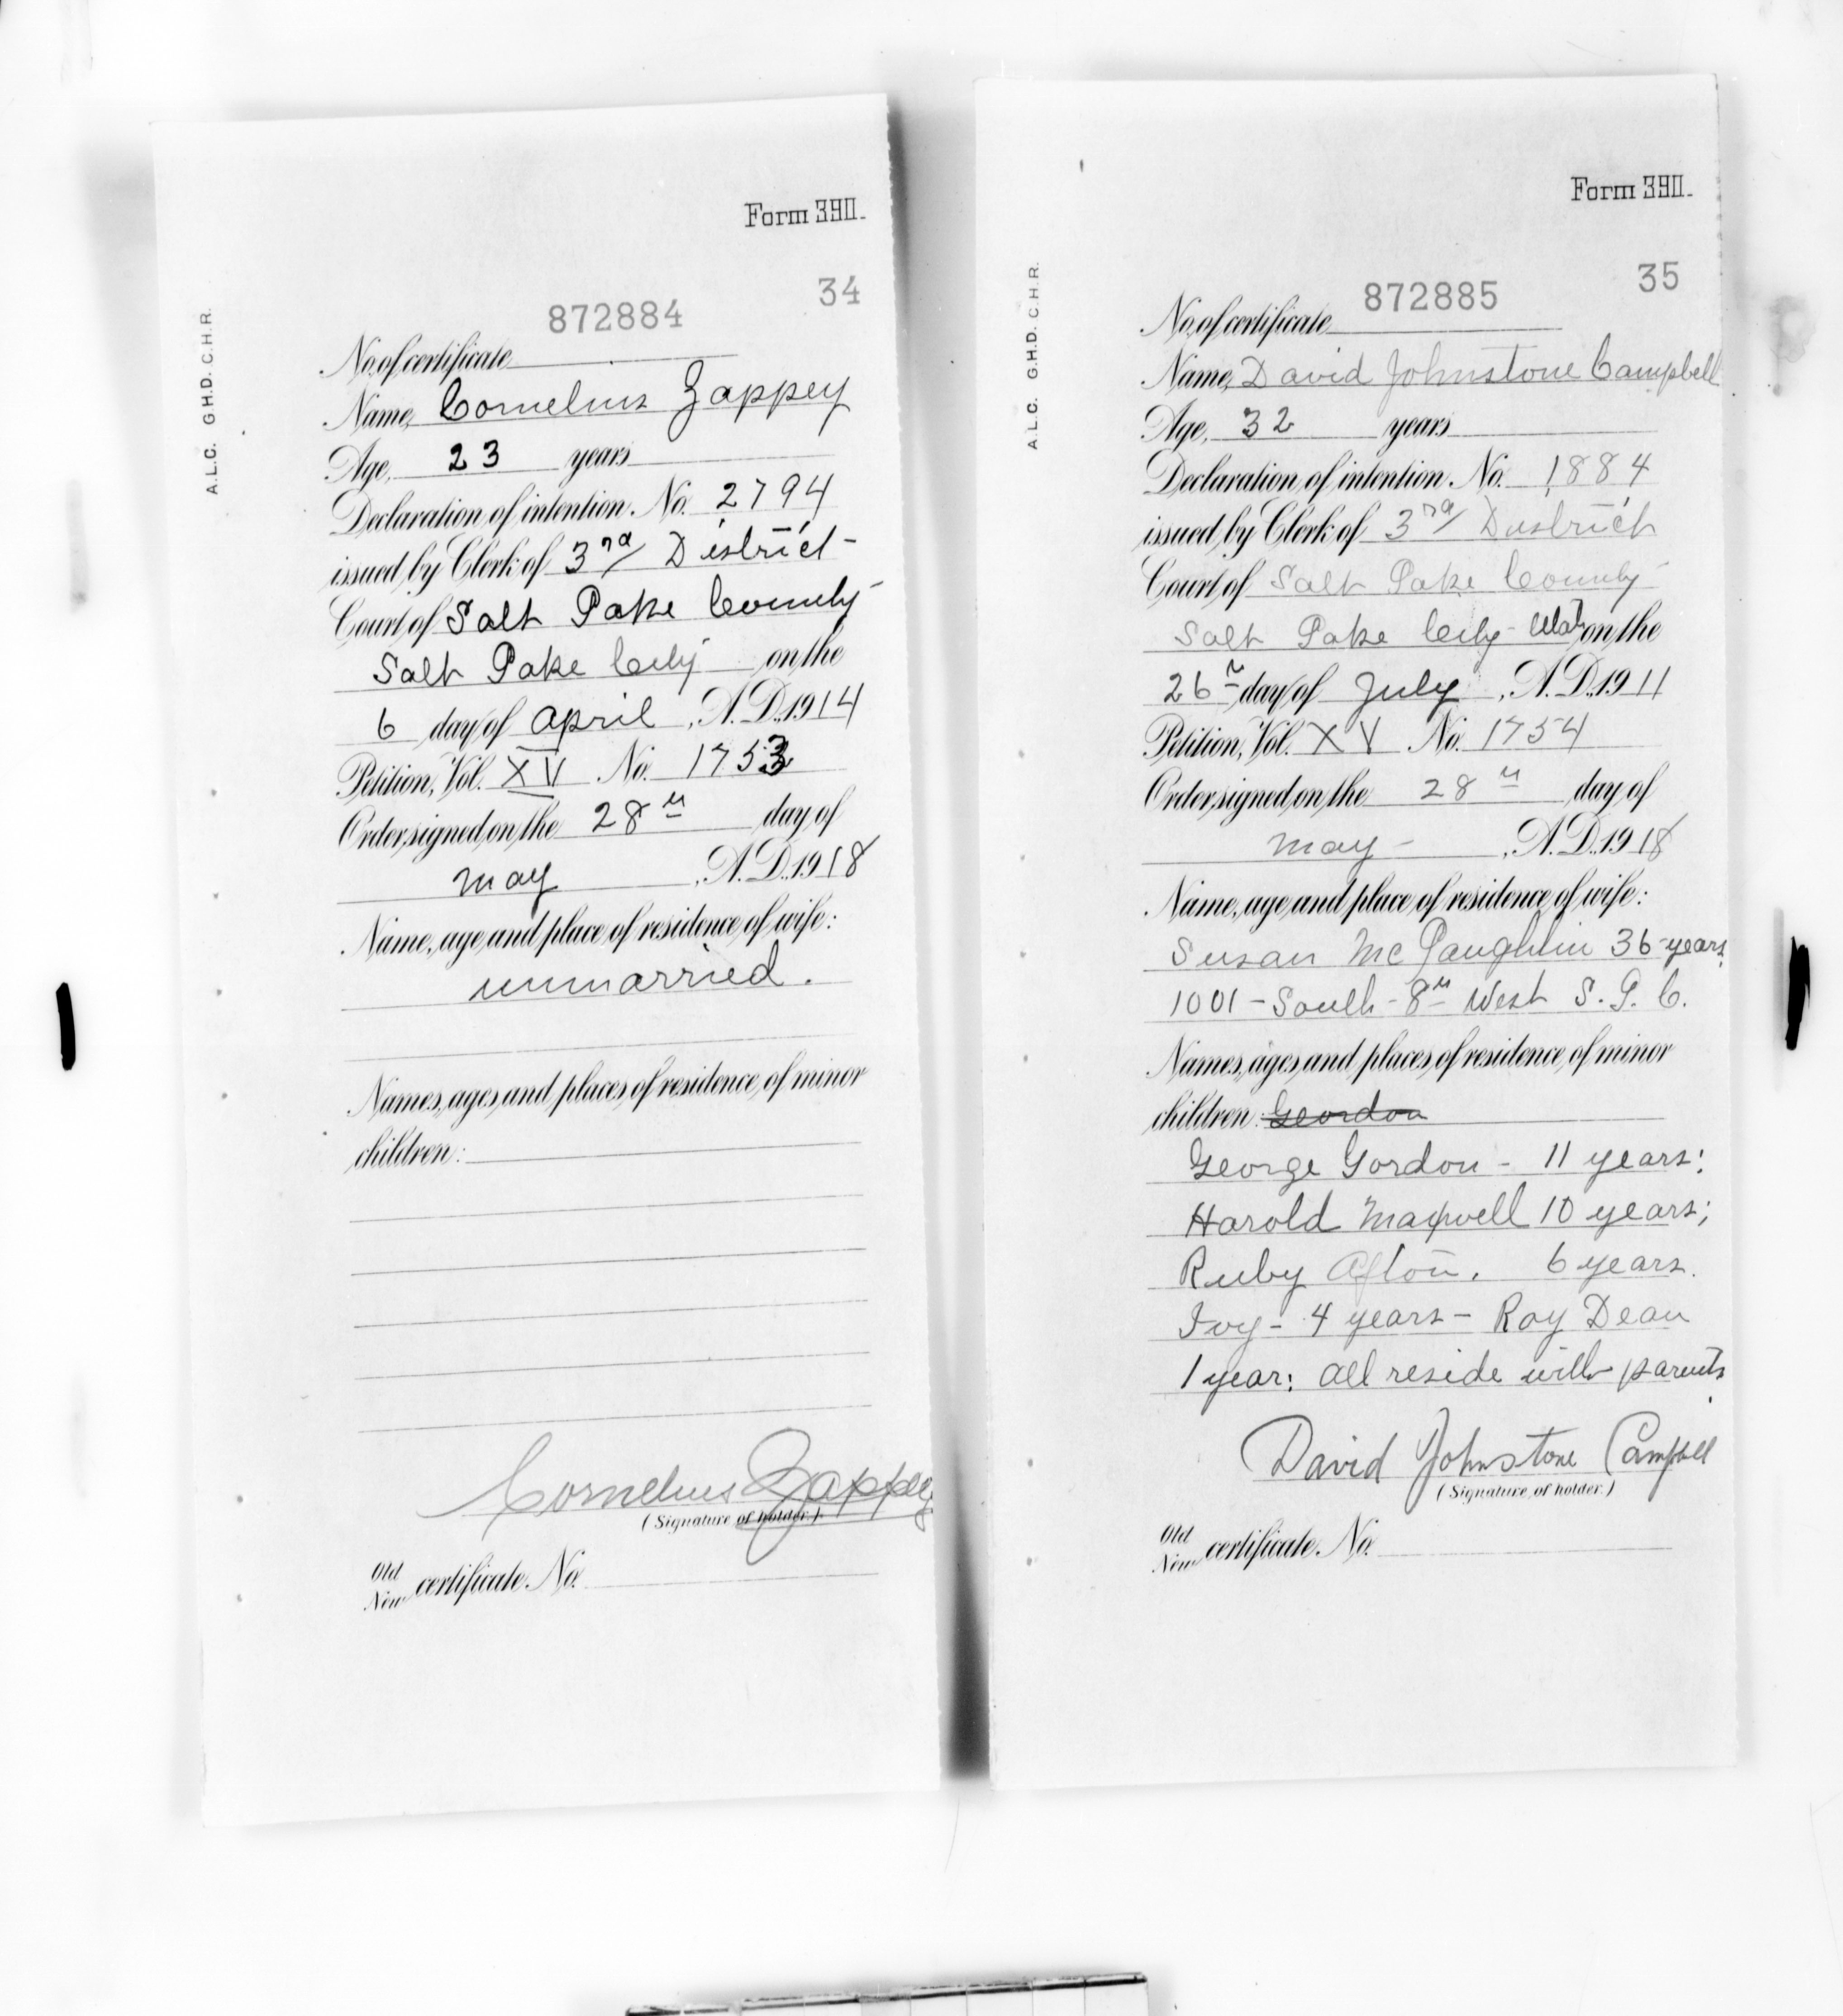 Form 390.
34
872884
A.L.C. G.H.D. C.H.R.
No. of certificate
Name, Cornelius Zappey
Age, 23 years
Declaration of intention. No. 2794
issued by Clerk of 3rd District
Court of Salt Lake County
Salt Lake City on the
6 day of April, A.D. 1914
Petition, Vol. XV No. 1753
Order signed on the 28th day of
May, A.D. 1918
Name, age and place of residence of wife:
unmarried.
Names, ages and places of residence of minor
children:
Cornelius Zappey
(Signature of holder.)
Old
New certificate No.
Form 390.
35
872885
A.L.C. G.H.D. C.H.R.
No. of certificate
Name, David Johnstone Campbell
Age, 32 years
Declaration of intention. No. 1884
issued by Clerk of 3rd District
Court of Salt Lake County
Salt Lake City Utah on the
26th day of July, A.D. 1911
Petition, Vol. XV No. 1754
Order signed on the 28th day of
May, A.D. 1918
Name, age and place of residence of wife:
Susan McLaughlin 36 years
1001 - South - 8th West S. L. C.
Names, ages and places of residence of minor
children: Geordon
George Gordon - 11 years:
Harold Maxwell 10 years;
Ruby Afton. 6 years.
Ivy - 4 years - Ray Dean
1 year: all reside with parents
David Johnstone Campbell
(Signature of holder.)
Old
New certificate No.